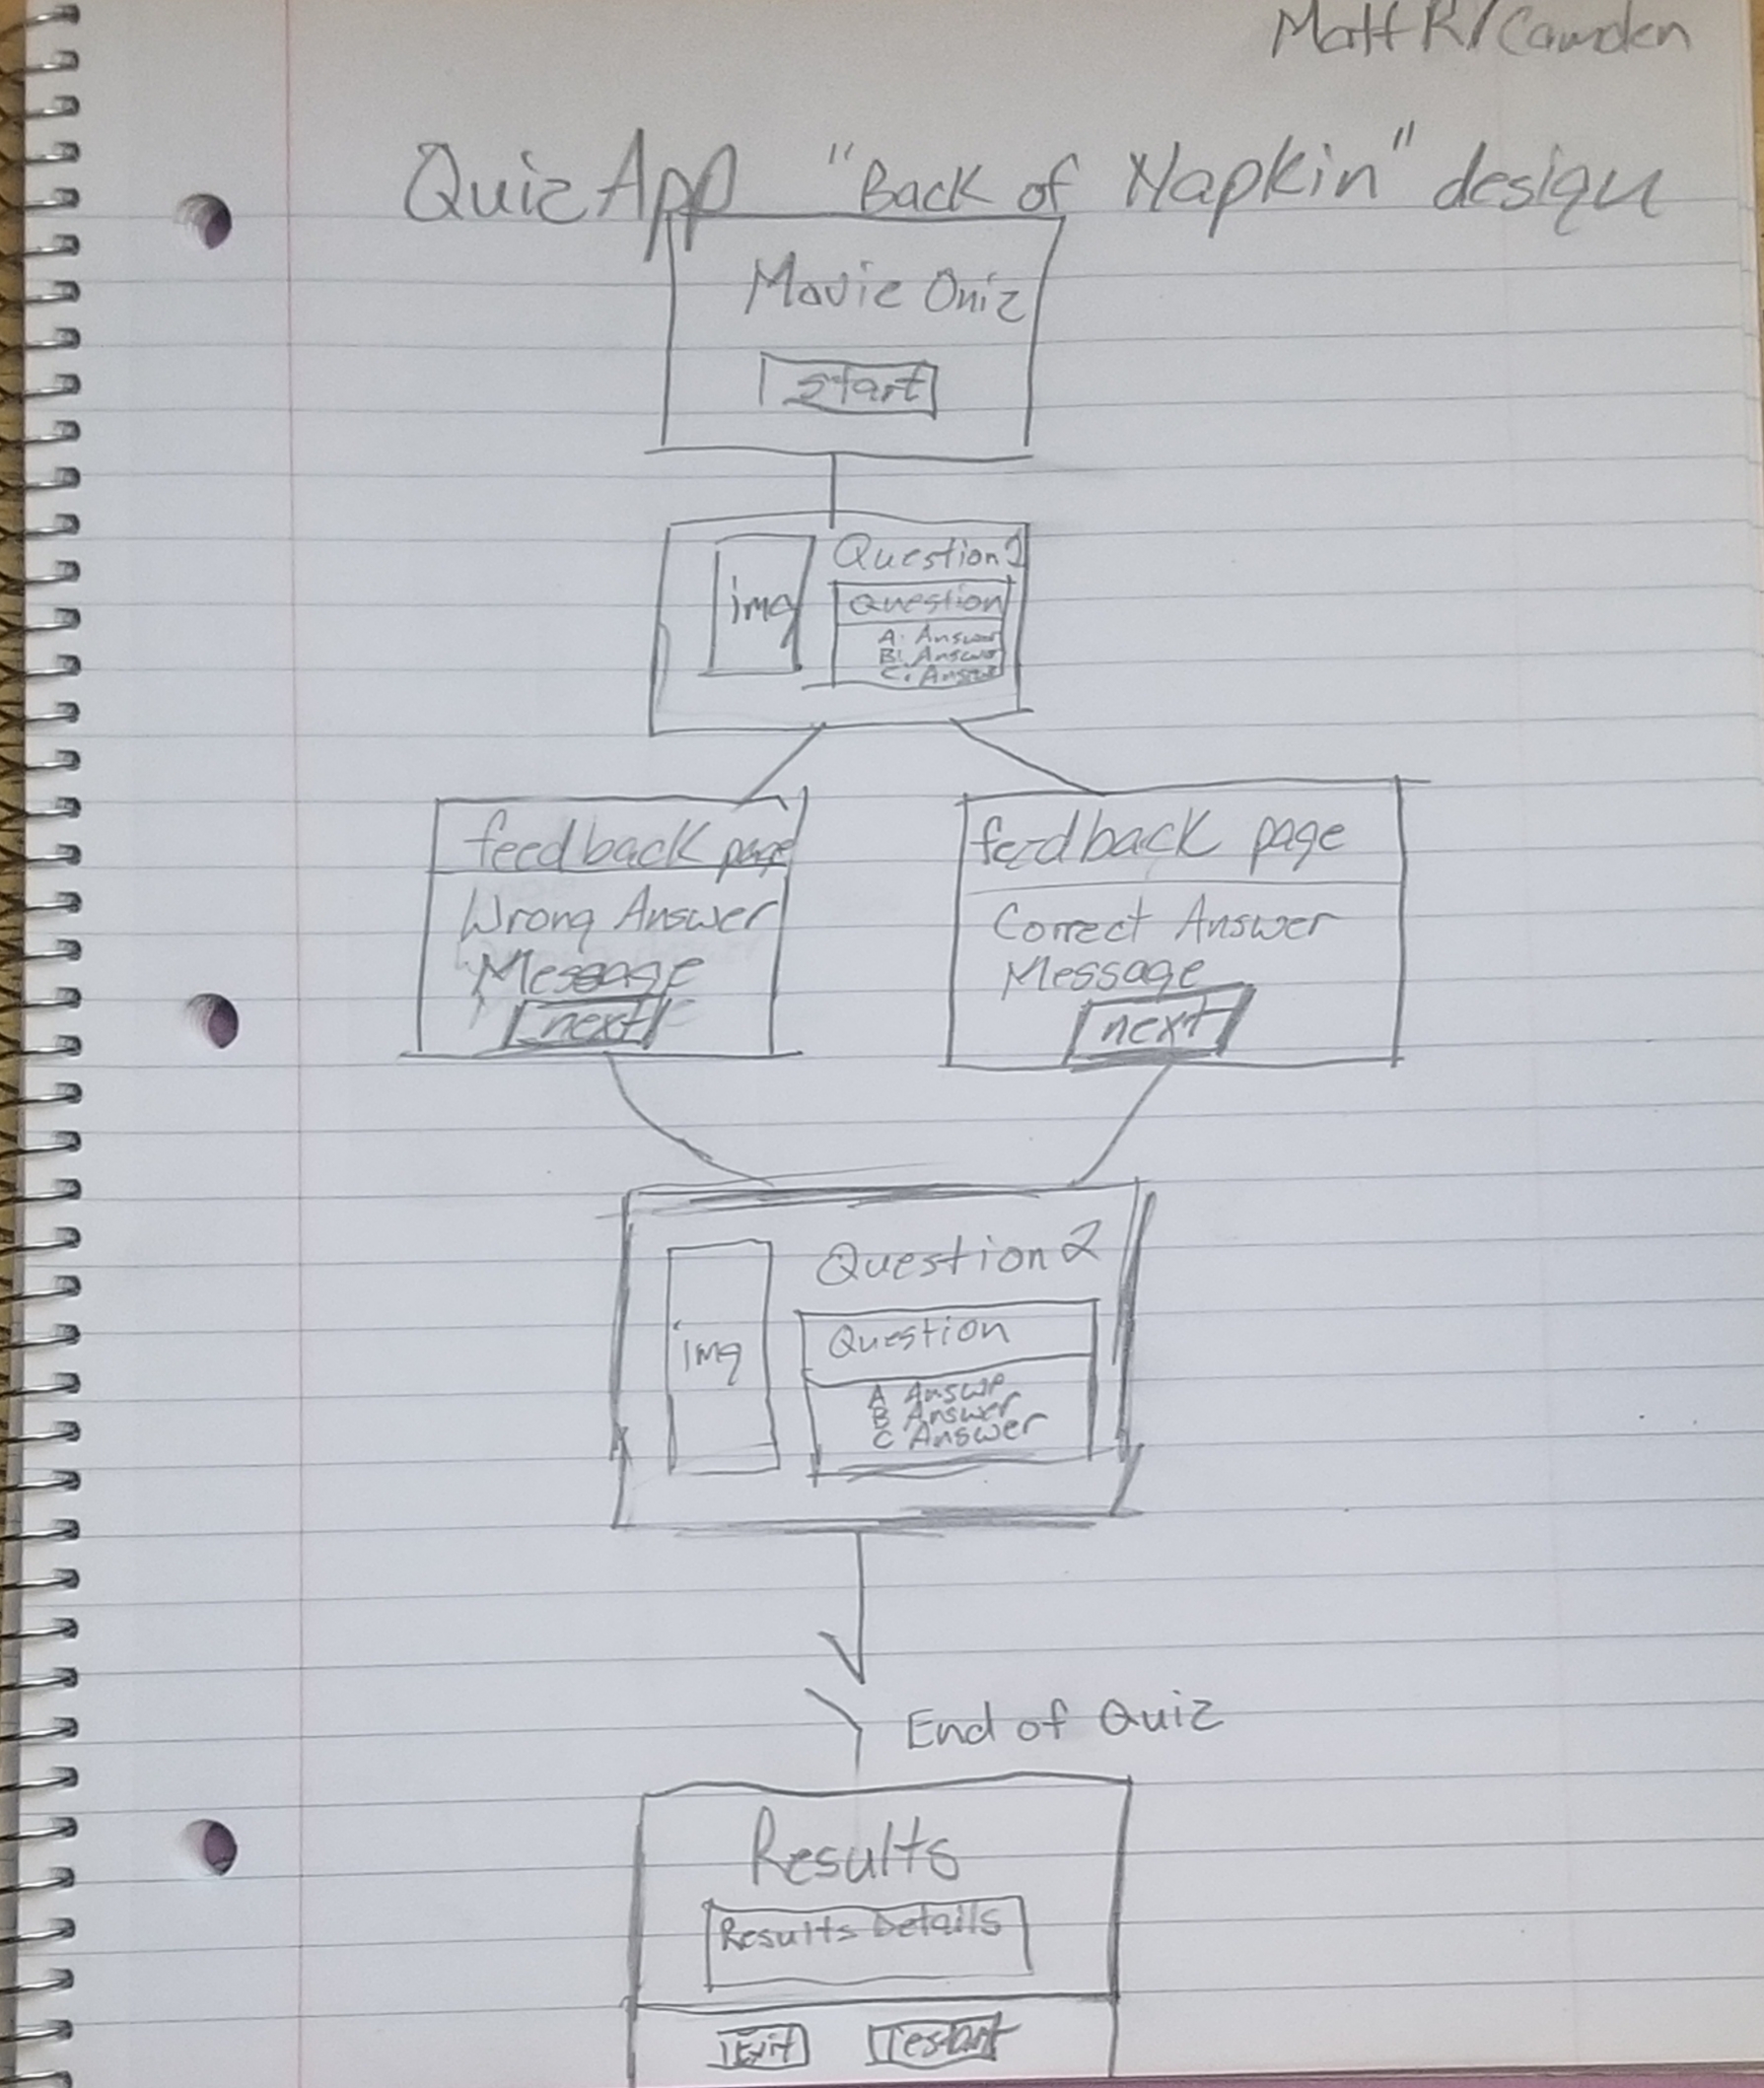 Matt R/Camden
Quiz App "Back of Napkin" design
Movie Quiz
Start
img
Question 1
Question
A: Answer
B: Answer
C: Answer
feedback page
Wrong Answer
Message
next
feedback page
Correct Answer
Message
next
img
Question 2
Question
A Answe
B Answer
C Answer
End of Quiz
Results
Results Details
Exit restart